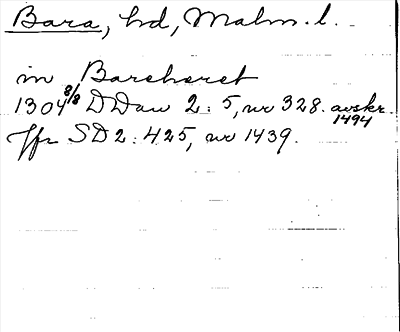 Bara, hd, Malm. l.
in Bareheret
1304 8/8 DDan 2:5, nr 328. avskr. 1494
Jfr SD 2:425, nr 1439.